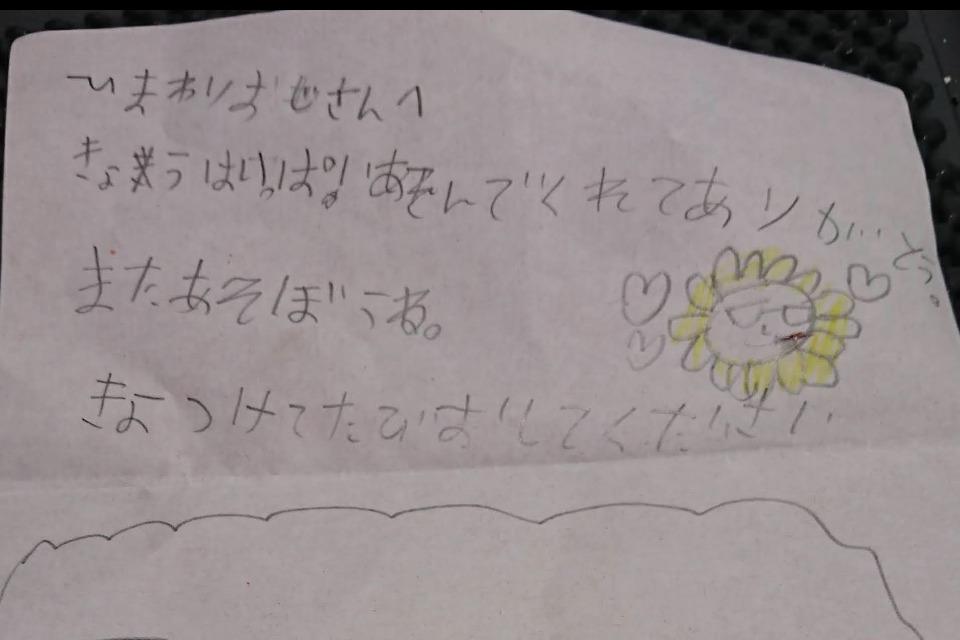 ひまわりおじさんへ
きょうはいっぱいあそんでくれてありがとう。
またあそぼうね。
きおつけてたびおしてください